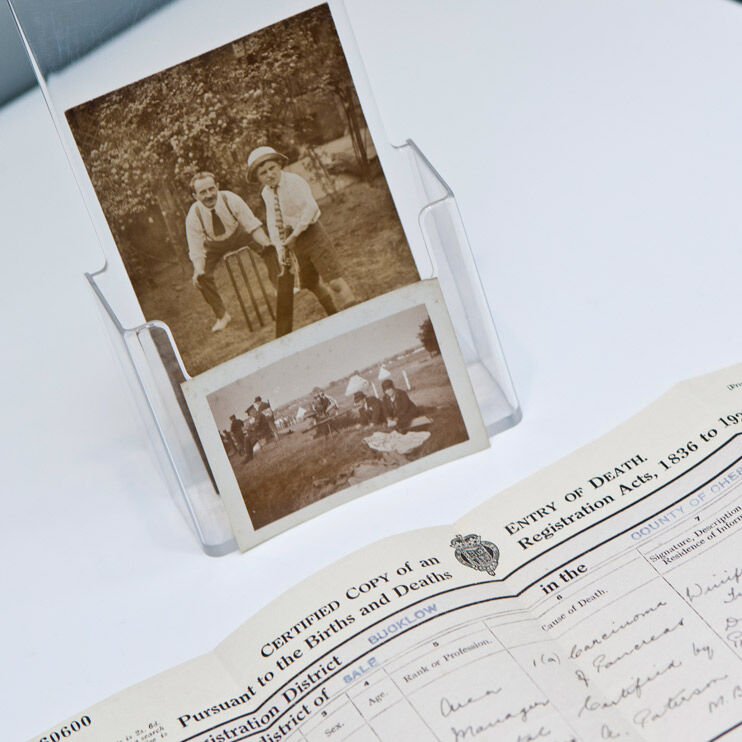 CERTIFIED COPY OF an ENTRY OF DEATH
Pursuant to the Births and Deaths Registration Acts, 1836 to
Registration District BUCKLOW
district of SALE in the COUNTY OF
3 4 5 6 7
Sex. Age. Rank or Profession. Cause of Death. Signature, Description Residence of
Area 1(a) Carcinoma
Manager of Pancreas
Certified by
Paterson
M.B
60600
is 2s. 6d.
search